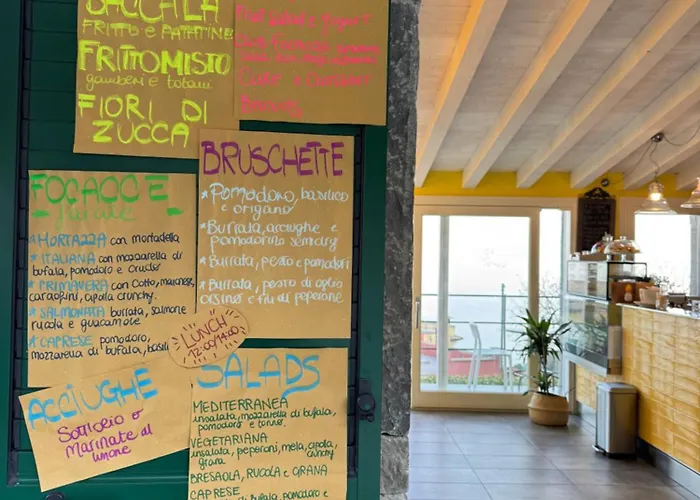 BACCALÀ
FRITTO e PATATINE
FRITTOMISTO
gamberi e totani
FIORI DI
ZUCCA
FOCACCE
farcite
*MORTAZZA con mortadella
*ITALIANA con mozzarella di
bufala, pomodoro e crudo
*PRIMAVERA con cotto, maionese,
carciofini, cipolla crunchy.
*SALMONATA burrata, salmone
rucola e guacamole
*CAPRESE pomodoro,
mozzarella di bufala, basilico
BRUSCHETTE
*Pomodoro, basilico
e origano
*Burrata, acciughe e
pomodorino semidry
*Burrata, pesto e pomodori
*Burrata, pesto di aglio
orsino e fili di peperone
LUNCH
12:00/14:00
ACCIUGHE
SOTTOLIO e
Marinate al
limone
SALADS
MEDITERRANEA
insalata, mozzarella di bufala,
pomodoro e tonno.
VEGETARIANA
insalata, peperoni, mela, cipolla
crunchy
grana
BRESAOLA, RUCOLA e GRANA
CAPRESE
di bufala, pomodoro e